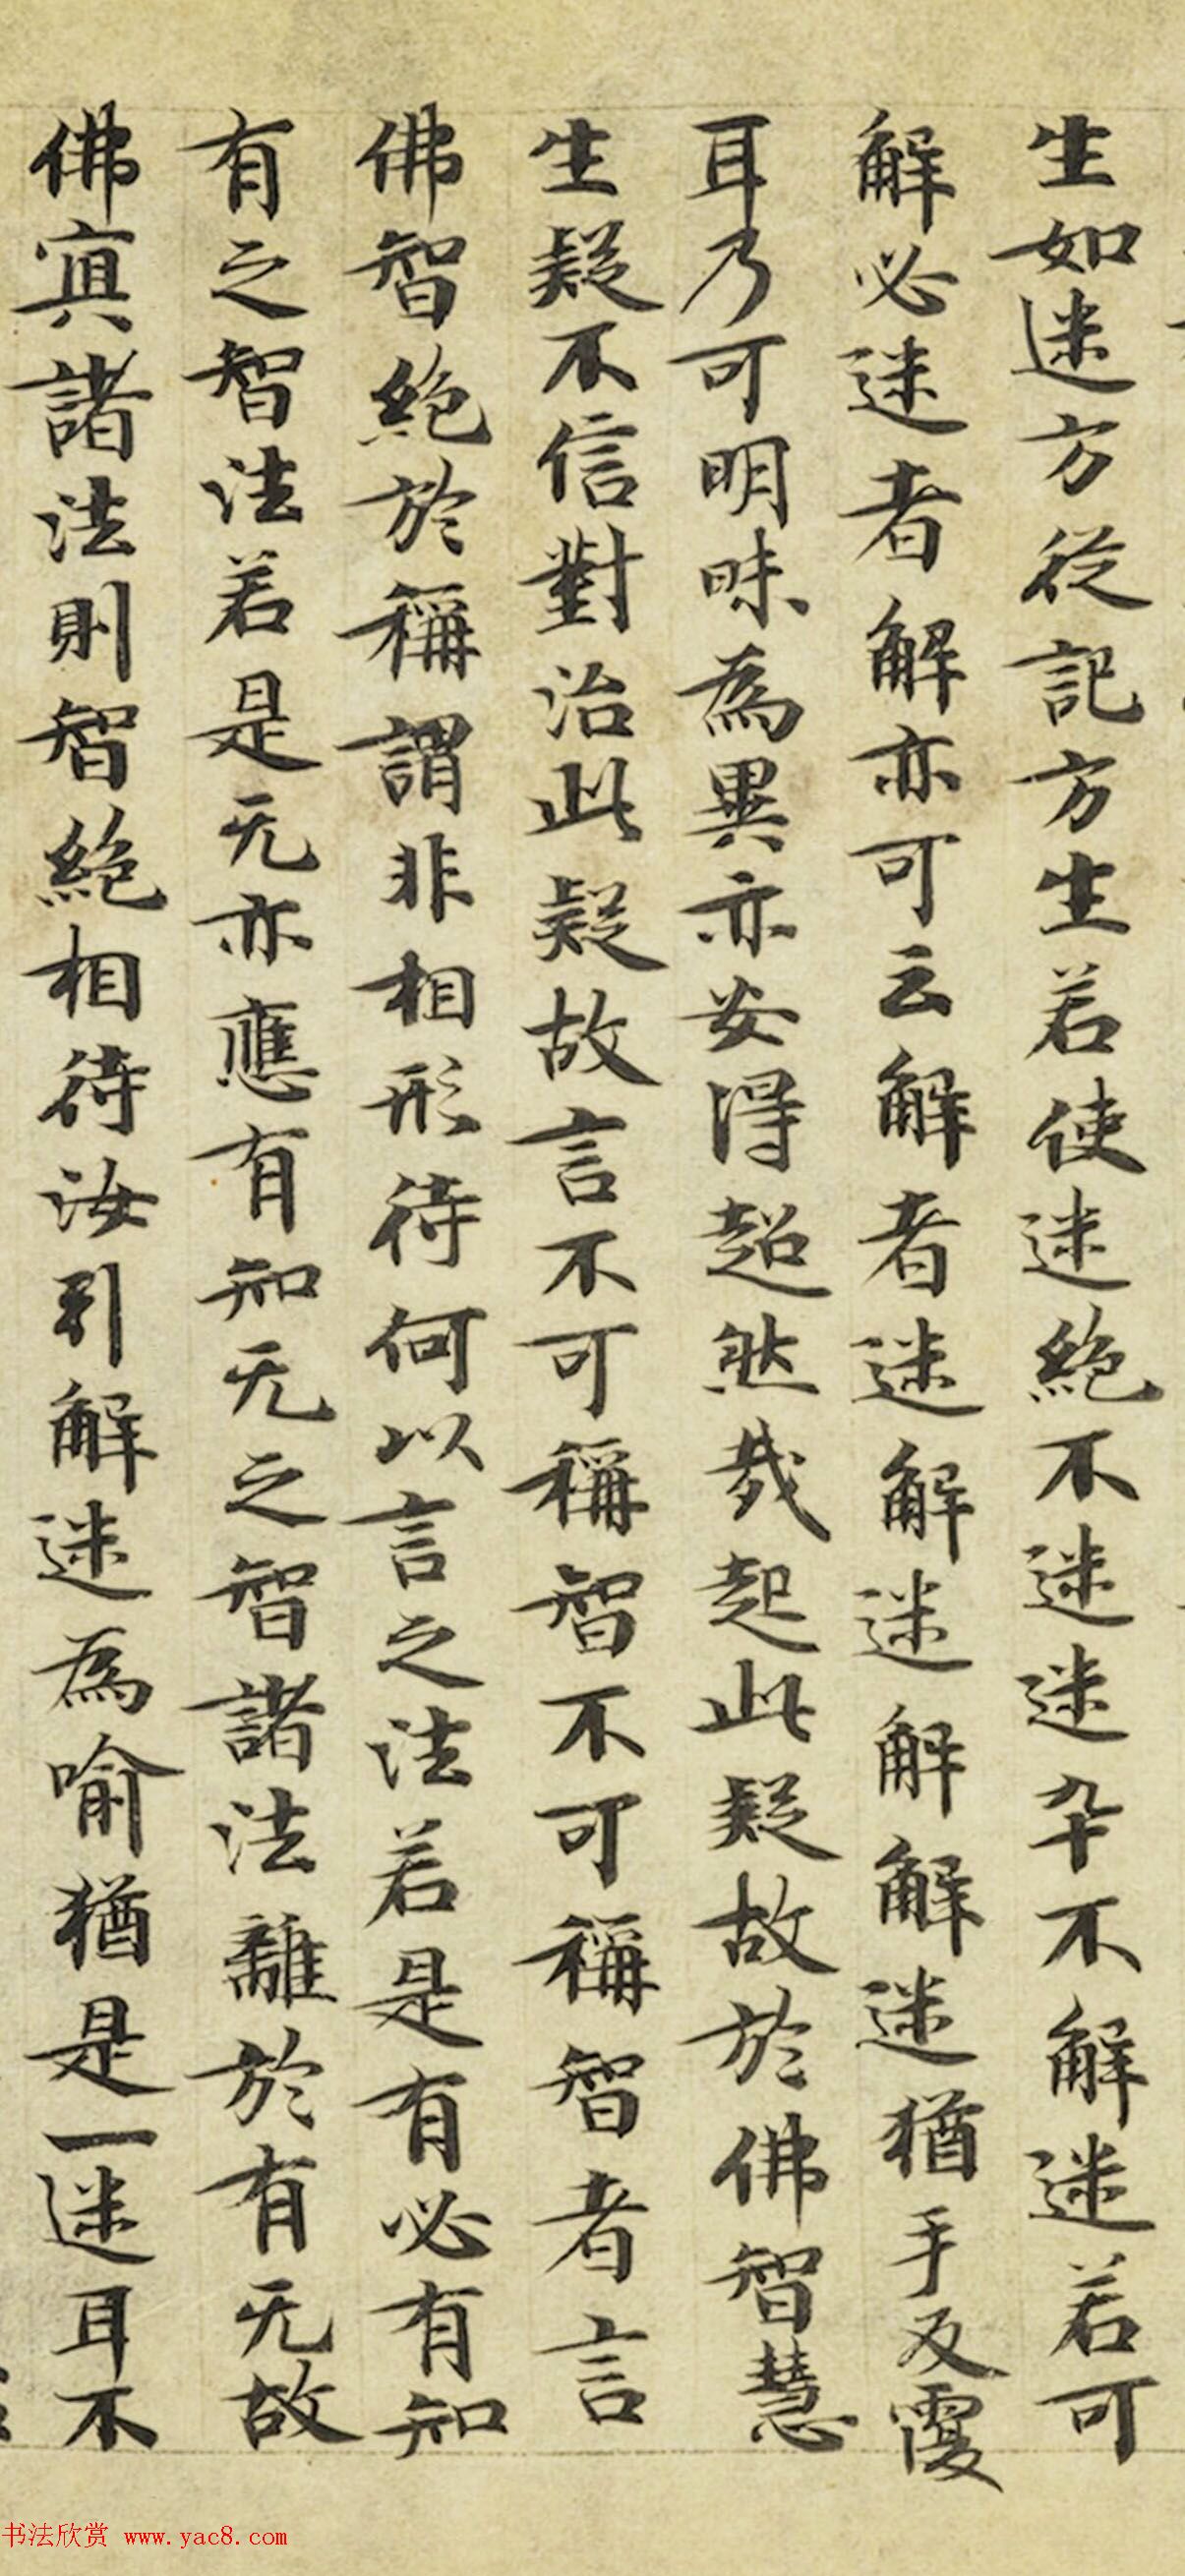 生如迷方從記方生若使迷絶不迷迷卒不解迷若可
解必迷者解亦可云解者迷解迷解解迷猶手反覆
耳乃可明昧為異亦安得超然哉起此疑故於佛智慧
生疑不信對治此疑故言不可稱智不可稱智者言
佛智絶於稱謂非相形待何以言之法若是有必有知
有之智法若是无亦應有知无之智諸法離於有无故
佛寘諸法則智絶相待汝引解迷為喻猶是一迷耳不
书法欣赏 www.yac8.com